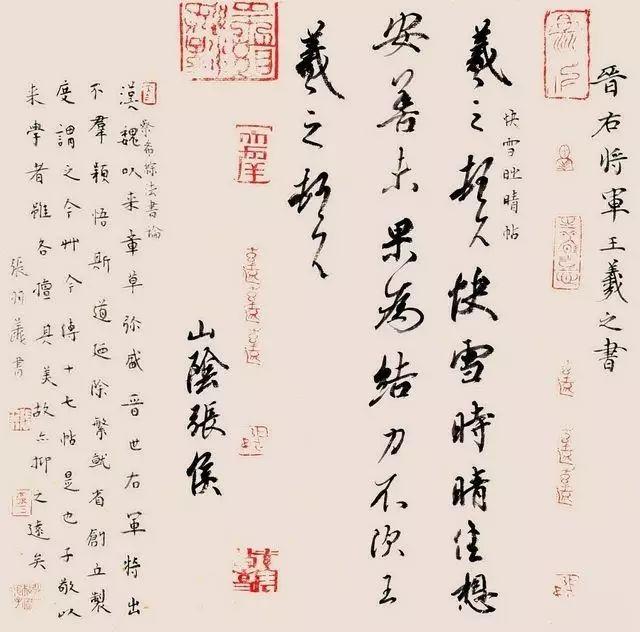 晉右將軍王羲之書
快雪時晴帖
羲之頓首快雪時晴佳想
安善未果為結力不次王
羲之頓首
山陰張侯
蔡希綜法書論
漢魏以來章草弥盛晉世右軍特出
不羣穎悟斯道迺除繁就省創立製
度謂之今艸今傳十七帖是也子敬以
來學者雖各擅其美故亦抑之遠矣
張羽書